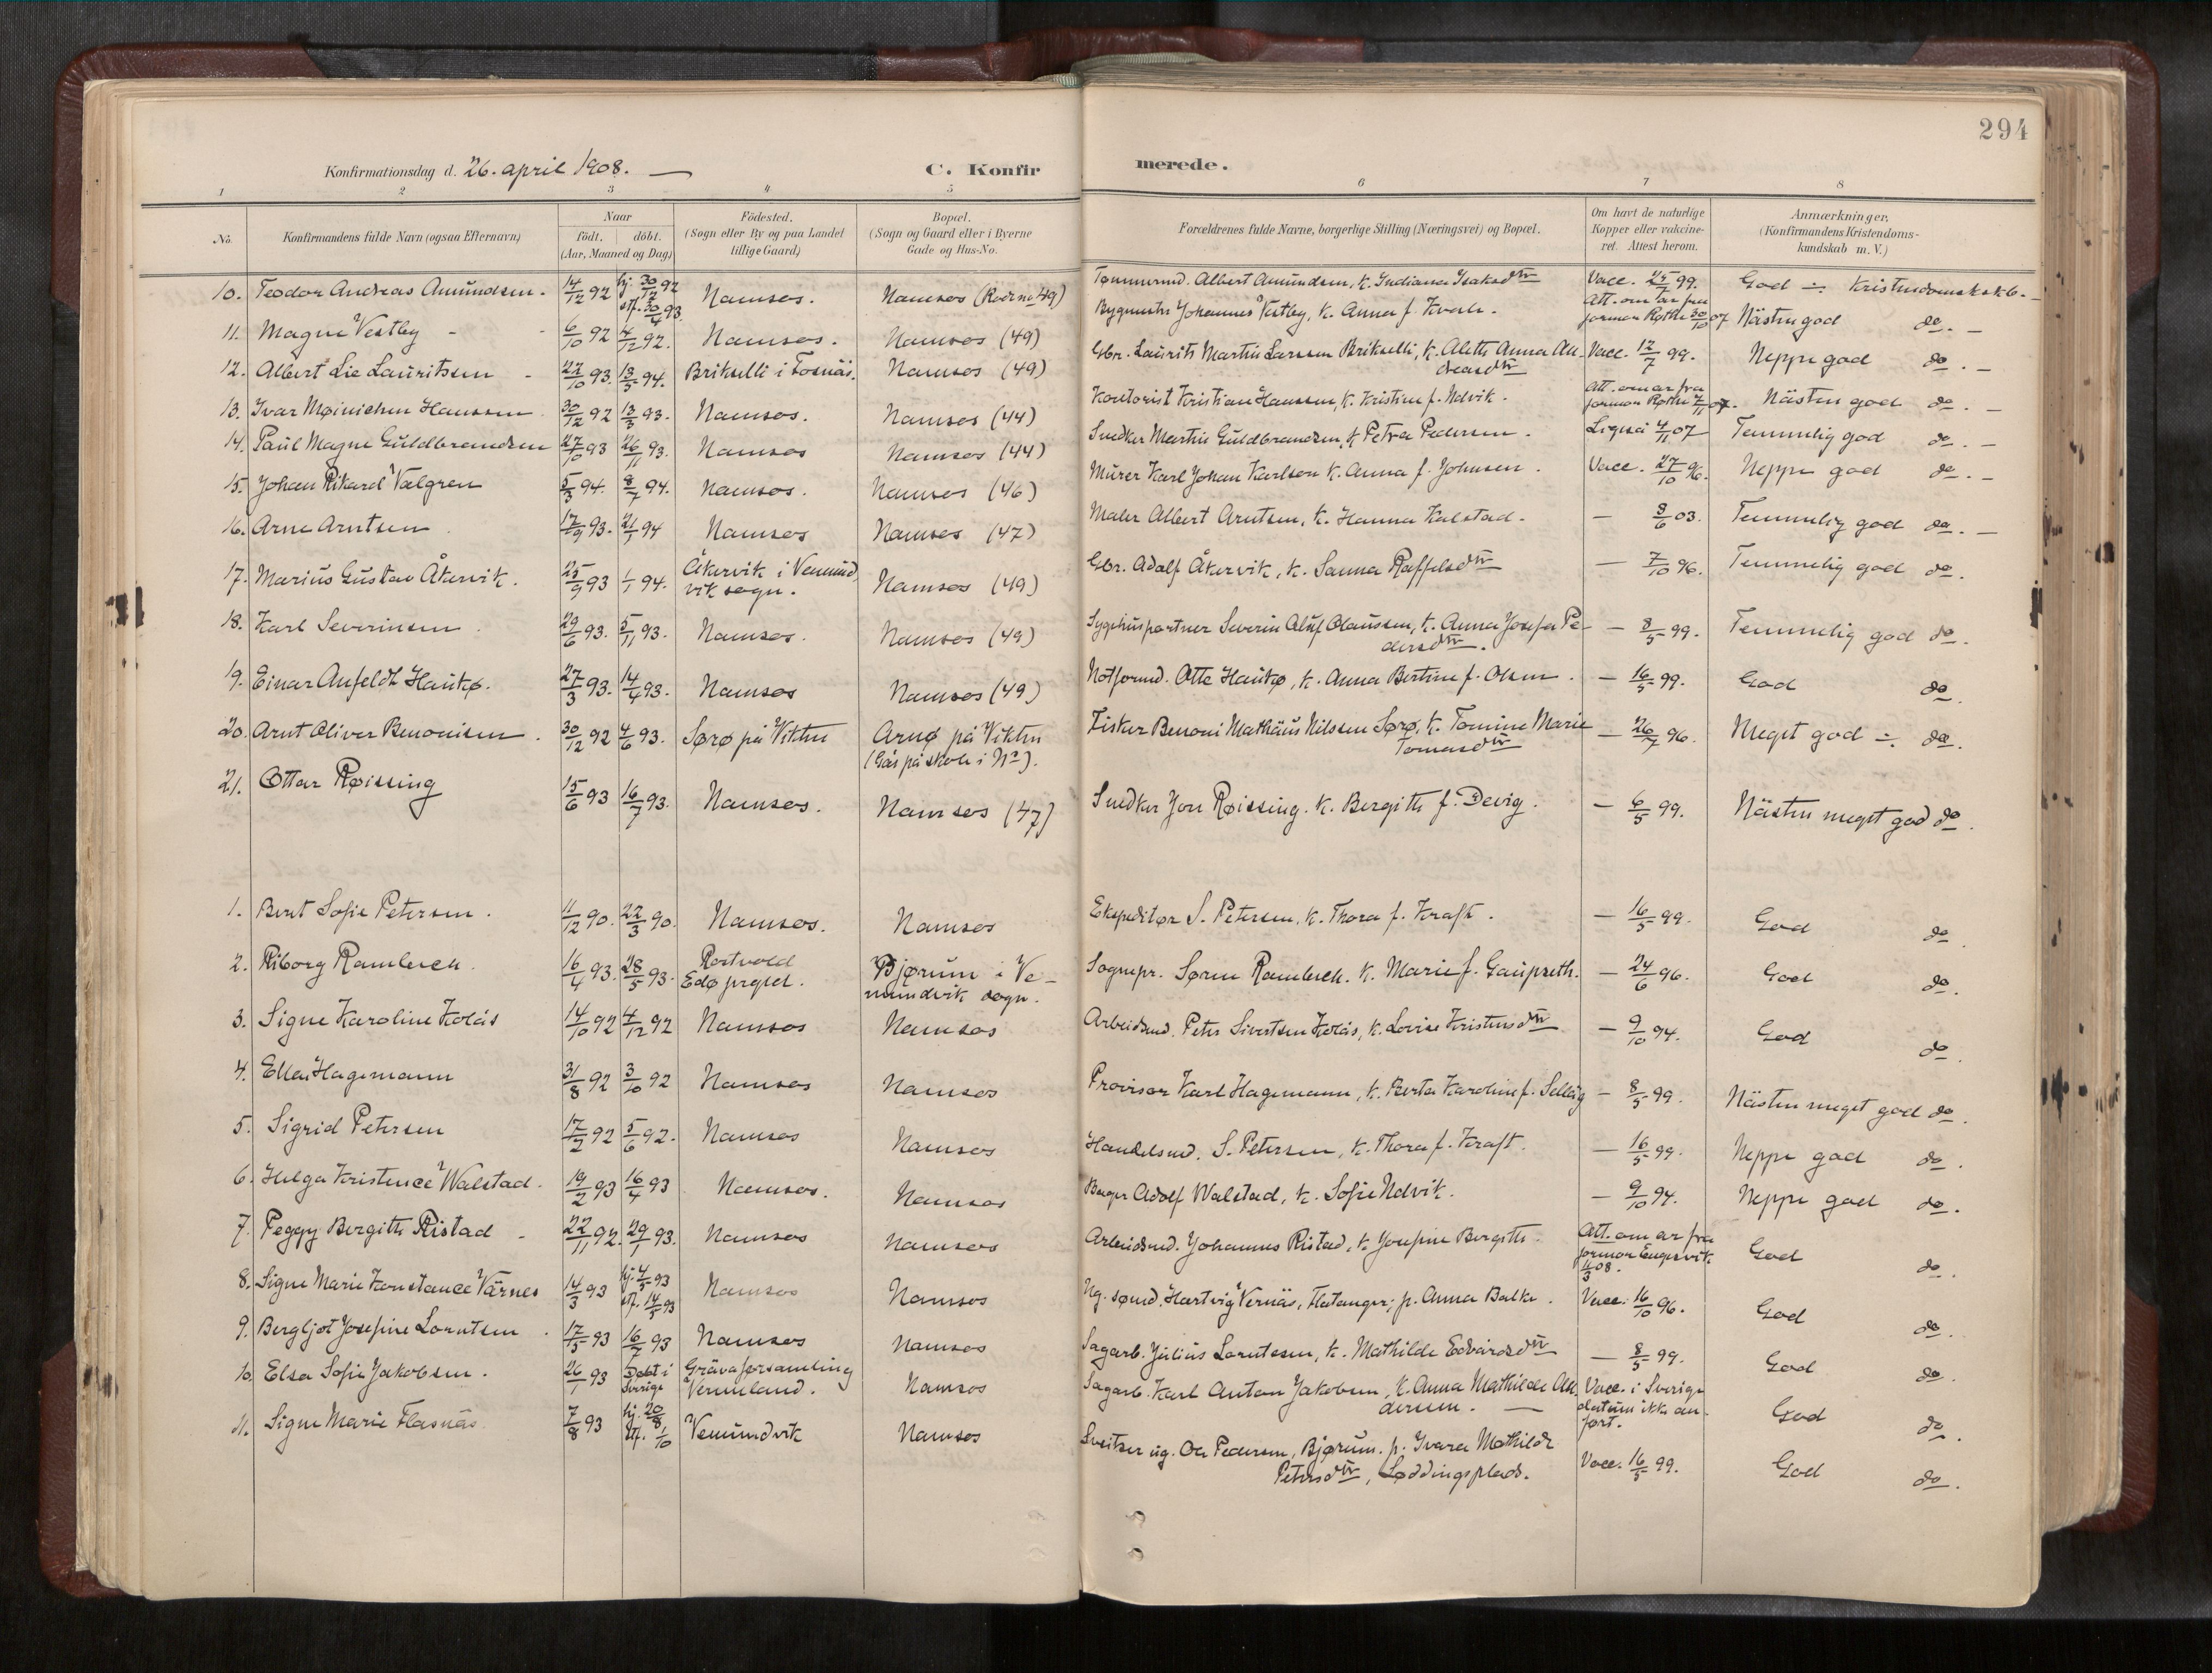 294
Konfirmationsdag d. 26. april 1908. —
C. Konfirmerede.
1 2 3 4 5 6 7 8
No. Konfirmandens fulde Navn (ogsaa Efternavn) Naar födt. döbt. (Aar, Maaned og Dag) Födested. (Sogn eller By og paa Landet tillige Gaard) Bopæl. (Sogn og Gaard eller i Byerne Gade og Hus-No. Forældrenes fulde Navne, borgerlige Stilling (Næringsvei) og Bopæl. Om havt de naturlige Kopper eller vakcineret. Attest herom. Anmærkninger, (Konfirmandens Kristendomskundskab m. V.)
10. Teodor Andreas Amundsen. 14/12 92 hj. 30/12 92 stf. 30/4 93. Namsos. Namsos (49) Tømmermd. Albert Amundsen, k. Indiana Isaksdtr Vacc. 25/7 99. God ÷ Kristendomskskb. -
11. Magne Vestby - 6/10 92 4/12 92. Namsos. Namsos (49) Bygmestr Johannes Vestby, k. Anna f. Att. om ar fra jormor Røthe 30/10 07 Nästen god do. -
12. Albert Lie Lauritssen - 22/10 93. 13/5 94. Brikselli i Fosnäs. Namsos (49) Gbr. Laurits Martin Larssen Brikselli, k. Aleth Anna Andreasdtr Vacc. 12/7 99. Neppe god do. -
13. Ivar Møinichen Hanssen 30/12 92 13/3 93. Namsos. Namsos (44) Kontorist Kristian Hanssen, k. Kristine f. Ndvik. Att. om ar fra jormor Røthe 7/11 07. Nästen god do. -
14. Paul Magne Guldbrandsen 27/10 93 26/11 93. Namsos Namsos (44) Snedker Martin Guldbrandsen, k Petra Pedersen. Ligeså 4/11 07 Temmelig god do. -
15. Johan Rikard Valgren 5/3 94. 8/7 94. Namsos. Namsos (46) Murer Karl Johan Karlson k. Anna f. Johnsen. Vacc. 27/10 96. Neppe god do. -
16. Arne Arntsen 17/9 93. 21/1 94 Namsos Namsos (47) Maler Albert Arntsen, k. Hanna Kalstad. — 8/6 03. Temmelig god do. -
17. Marius Gustav Åkervik. 25/9 93 1/1 94. Åkervik i Vemundvik sogn. Namsos (49) Gbr. Adolf Åkervik, k. Sanna Raffelsdtr — 7/10 96. Temmelig god do.
18. Karl Severinsen 29/6 93. 5/11 93. Namsos. Namsos (49) Sygehusportner Severin Aluf Olaussen, k. Anna Josefa Pedersdtr. — 8/5 99. Temmelig god do.
19. Einar Anfeldt Haukø. 27/3 93. 14/4 93. Namsos Namsos (49) Notformd. Otte Haukø, k. Anna Bertine f. Olsen. — 16/5 99. God do
20. Arnt Oliver Benonisen. 30/12 92 4/6 93. Sørø på Vikten Arnø på Vikten (Gås på skole i Ns). Fisker Benoni Mathäus Nilssen Sørø, k. Tomine Marie Tomasdtr — 26/7 96. Meget god ÷ do.
21. Ottar Røissing 15/6 93 16/7 93. Namsos. Namsos (47) Snedker Jon Røissing. k. Bergith f. Devig. — 6/5 99. Nästen meget god do.
1. Beret Sofie Petersen. 11/12 90. 22/3 90. Namsos. Namsos Ekspeditør S. Petersen, k. Thora f. Kraft. — 16/5 99. God do.
2. Riborg Rambech. 16/4 93. 28/5 93. Rostvold Edø prgld. Bjørum i Vemundvik sogn. Sognepr. Søren Rambech. k. Marie f. Gaupseth. — 24/6 96. God do.
3. Signe Karoline Kolås 14/10 92 4/12 92 Namsos Namsos Arbeidsmd. Peter Sivertsen Kolås, k. Lovise Kristensdtr — 9/10 94. God do.
4. Ellen Hagemann 31/8 92 3/10 92 Namsos Namsos Provisor Karl Hagemann, k. Berta Karoline f. Selläg — 8/5 99. Nästen meget god do.
5. Sigrid Petersen 17/2 92 5/6 92. Namsos Namsos Handelsmd. S. Petersen, k. Thora f. Kraft. — 16/5 99. Neppe god do.
6. Helga Kristence Walstad. 19/2 93 16/4 93 Namsos. Namsos Bager Adolf Walstad, k. Sofie Ndvik. — 9/10 94. Neppe god do.
7. Peggy Bergitte Ristad - 22/11 92. 29/1 93. Namsos Namsos Arbeidsmd. Johannes Ristad, k. Josefine Bergitte. Att. om ar fra jormor Engesvik 11/3 08. God do.
8. Signe Marie Konstance Värnes 14/3 93 hj. 4/5 93 stf. 14/5 93 Namsos Namsos Ug. sømd. Hartvig Vernäs, Flatanger; p. Anna Balke. Vacc. 16/10 96. God do.
9. Bergljot Josefine Lorntsen. 17/5 93 16/7 93 Namsos Namsos Sagarb. Julius Lorntsen, k. Mathilde Edvardsdtr — 8/5 99. God do.
10. Elsa Sofie Jakobsen. 26/1 93 Døbt i Sverige Gräva forsamling Vermland. Namsos Sagarb. Karl Anton Jakobsen, k. Anna Mathilde Andersen. — Vacc. i Sverige datum ikke anført. God do.
11. Signe Marie Flasnäs. 7/8 93 hj. 20/8 stf. 1/10 Vemundvik Namsos Sveitser ug. Ole Pedersen, Bjørum. p. Ivara Mathilde Petersdtr, Løddingsplads. Vacc. 16/5 99. God do.